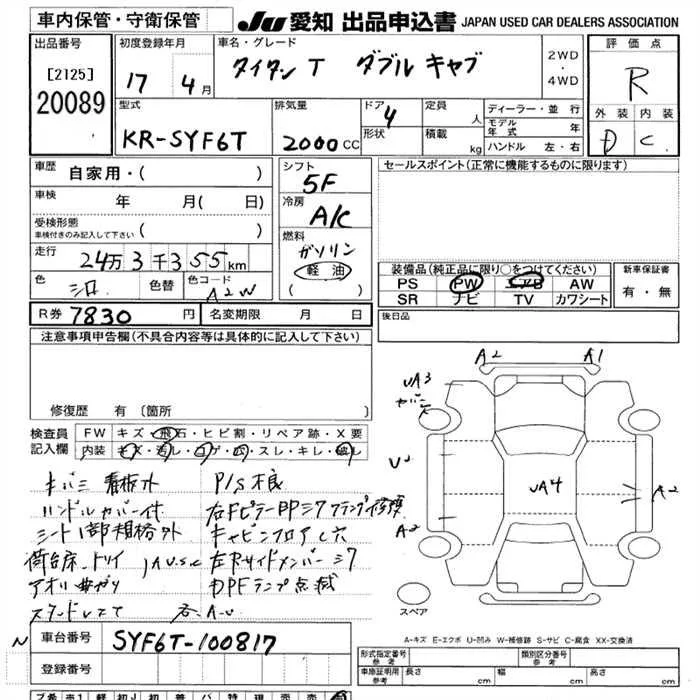 車内保管・守衛保管 JU 愛知 出品申込書 JAPAN USED CAR DEALERS ASSOCIATION
出品番号
[2125]
20089
初度登録年月
17 4月
車名・グレード
タイタン T ダブル キャブ
2WD
・
4WD
評価点
R
外装 内装
D C
型式
KR-SYF6T
排気量
2000cc
ドア
4
形状
定員
人
積載
kg
ディーラー・並 行
モデル年式 年
ハンドル 左・右
車歴
自家用・( )
車検
年 月( 日)
受検形態
車検付きのみ記入して下さい ( )
走行
24万3千355km
色
シロ
色替
色コード
A2W
シフト
5F
冷房
A/C
燃料
ガソリン
軽油
( )
セールスポイント(正常に機能するものに限ります)
装備品(純正品に限り○をつけてください)
PS PW エアB AW
SR ナビ TV カワシート
新車保証書
有・無
R券 7830円 名変期限 月 日
後日品
注意事項申告欄(不具合内容等は具体的に記入して下さい)
修復歴 有 〔箇所 〕
検査員記入欄
FW キズ・飛石・ヒビ割・リペア跡・X要
内装 キズ・汚し・コゲ・穴・スレ・キレ・破し
キバミ 看板外
ハンドルカバー付
シート1部規格外
荷台床、トリイ
アオリ曲がり
P/S不良
キャビンフロア C穴
左Rサイドメンバーシワ
DPFランプ点滅
各A.U
A2 A1
UA3
UA4
A2
A2
スペア
A-キズ E-エクボ U-凹み W-補修跡 S-サビ C-腐食 XX-交換済
車台番号 SYF6T-100817
登録番号
形式指定番号
参考
類別区分番号
参考
車庫証明用
参考
長さ cm 幅 cm 高さ cm